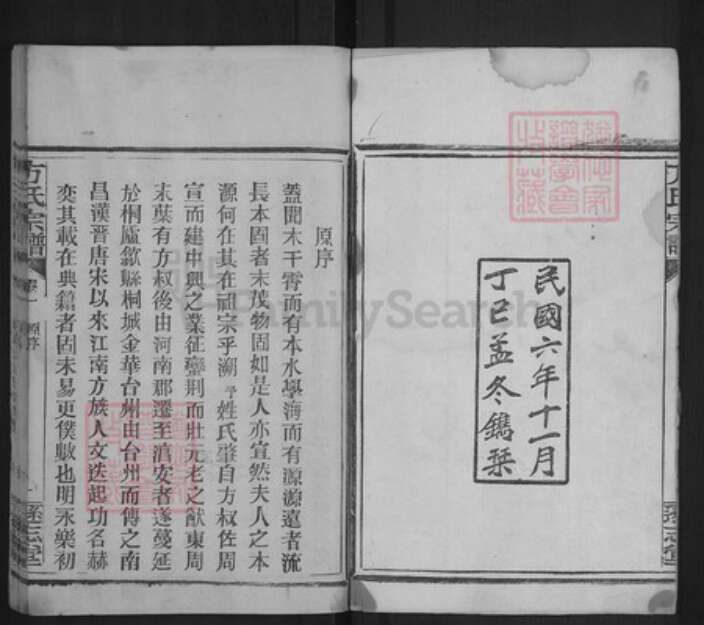 民國六年十一月
丁巳孟冬鐫琹
方氏宗譜
卷一
原序
原序
蓋聞木干霄而有本水學海而有源源遠者流
長本固者末茂物固如是人亦宜然夫人之本
源何在其在祖宗乎溯予姓氏肇自方叔佐周
宣而建中興之業征蠻荆而壯元老之猷東周
末葉有方叔後由河南郡遷至淯安者遂蔓延
於桐廬歙縣桐城金華台州由台州而傳之南
昌漢晉唐宋以來江南方族人文迭起功名赫
奕其載在典籍者固未易更僕數也明永樂初
FamilySearch